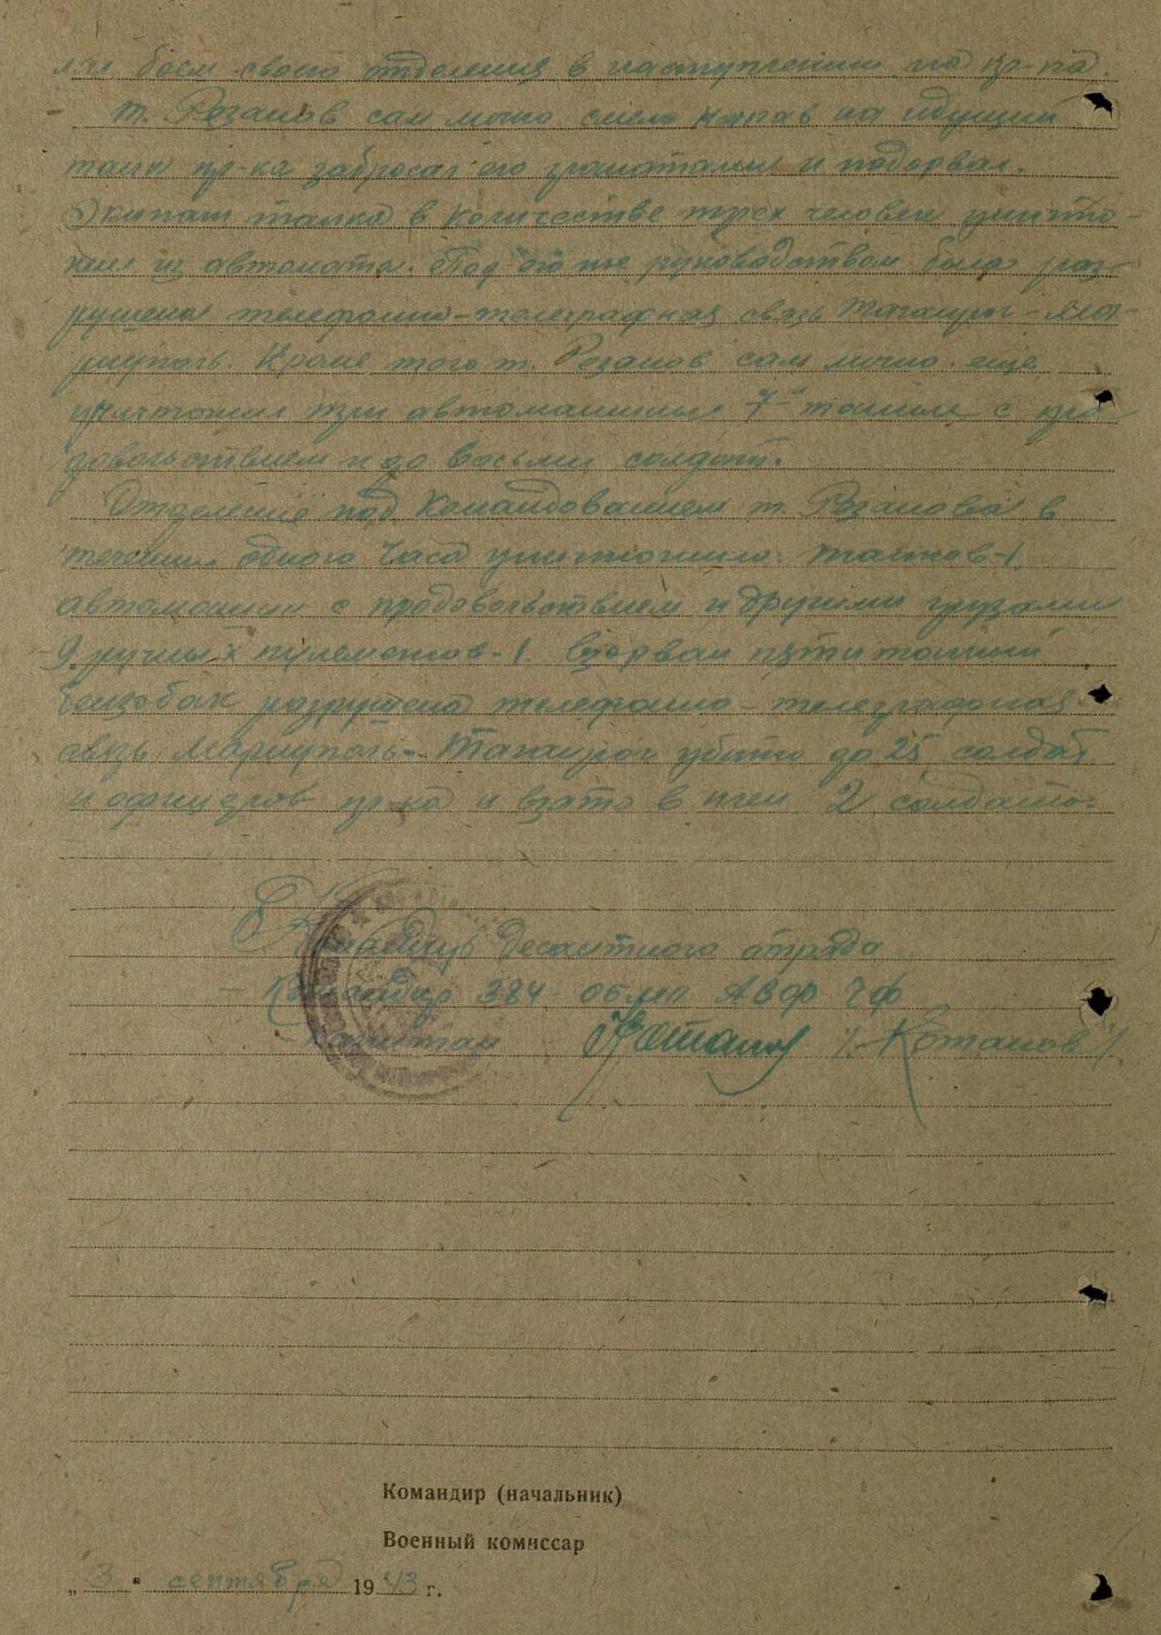 лял боем своего отделения в наступлении на пр-ка.
т. Резанов сам лично смело напав на идущий
танк пр-ка забросал его гранатами и подорвал.
Экипаж танка в количестве трех человек уничто-
жил из автомата. Под его же руководством была раз-
рушена телефонно-телеграфная связь Таганрог-Ма-
риуполь. Кроме того т. Резанов сам лично еще
уничтожил три автомашины 7и тонные с про-
довольствием и до восьми солдат.
Отделение под командованием т. Резанова в
течении одного часа уничтожило: танков-1,
автомашин с продовольствием и другими грузами
-9, ручных пулеметов-1. взорван пятитонный
бензобак разрушена телефонно телеграфная
связь Мариуполь-Таганрог убито до 25 солдат
и офицеров пр-ка и взято в плен 2 солдата.
Командир десантного отряда
- Командир 384 ОБМП АВОР ЧФ
- капитан Котанов /Котанов/.
Командир (начальник)
Военный комиссар
„3“ сентября 1943 г.